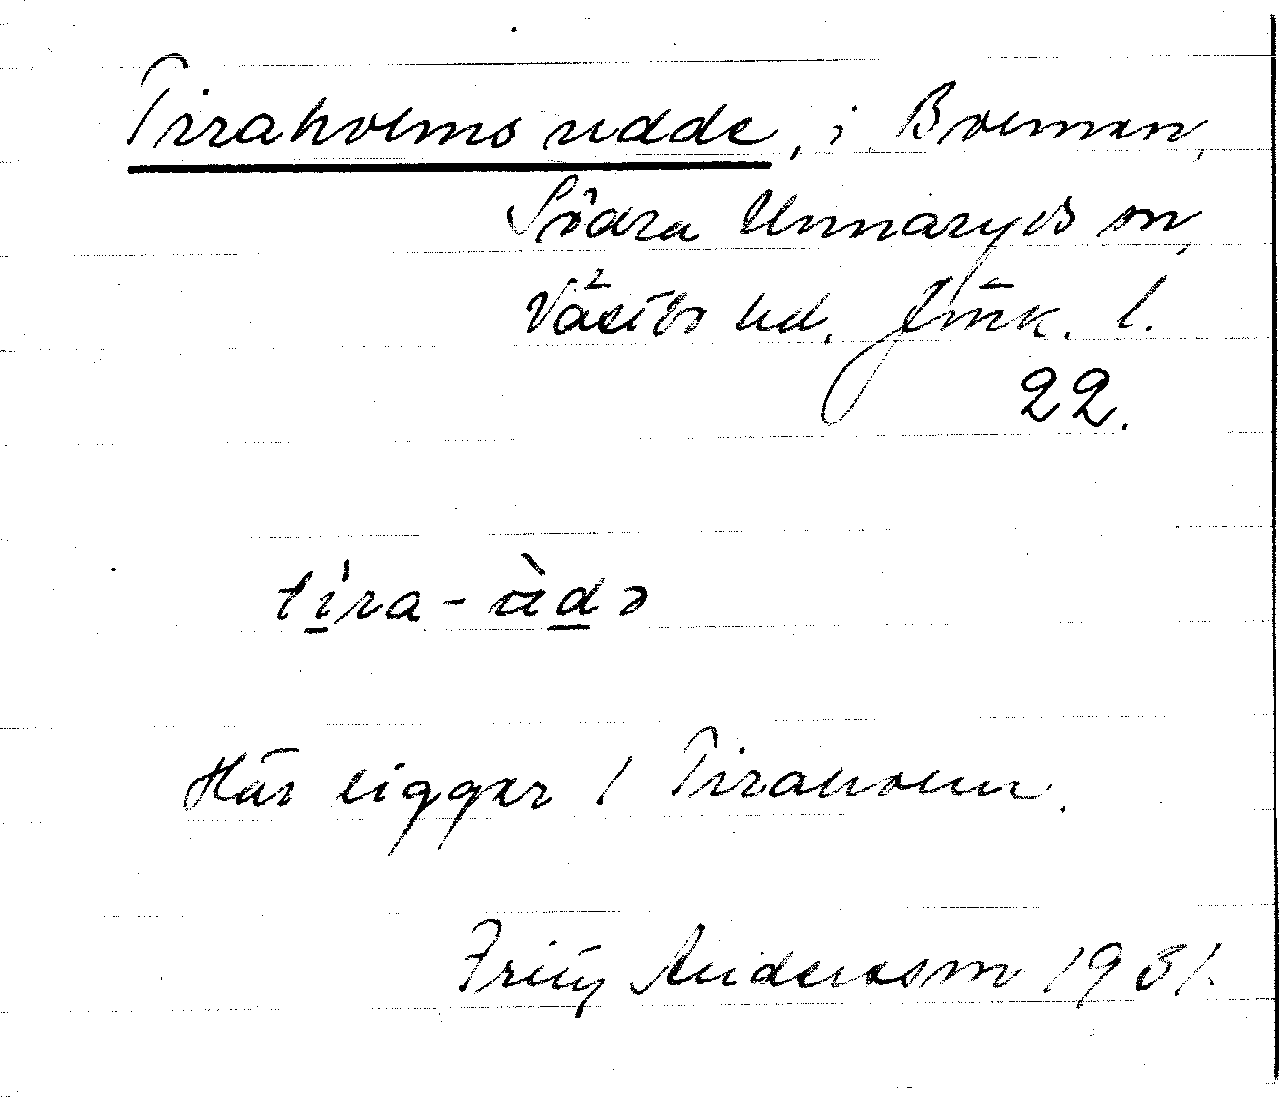 Tiraholms udde, i Bolmen,
Södra Unnaryds sn,
Västbo hd. Jönk. l.
22.
tira-ùdə
Här ligger 1 Tiraholm.
Fritz Anderson 1931.